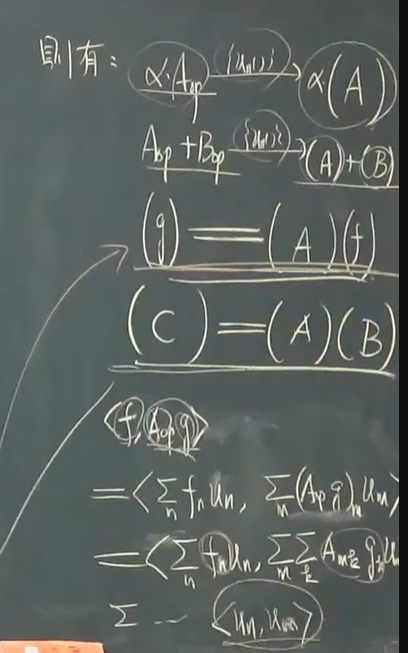 則有：α·A_op —{u_n(x)}→ α(A)
A_op + B_op —{u_n(x)}→ (A)+(B)
(g) = (A)(f)
(C) = (A)(B)
⟨f, A_op g⟩
= ⟨Σ_n f_n u_n, Σ_m (A_op g)_m u_m⟩
= ⟨Σ_n f_n u_n, Σ_m Σ_k A_mk g_k u
Σ — ⟨u_n, u_m⟩